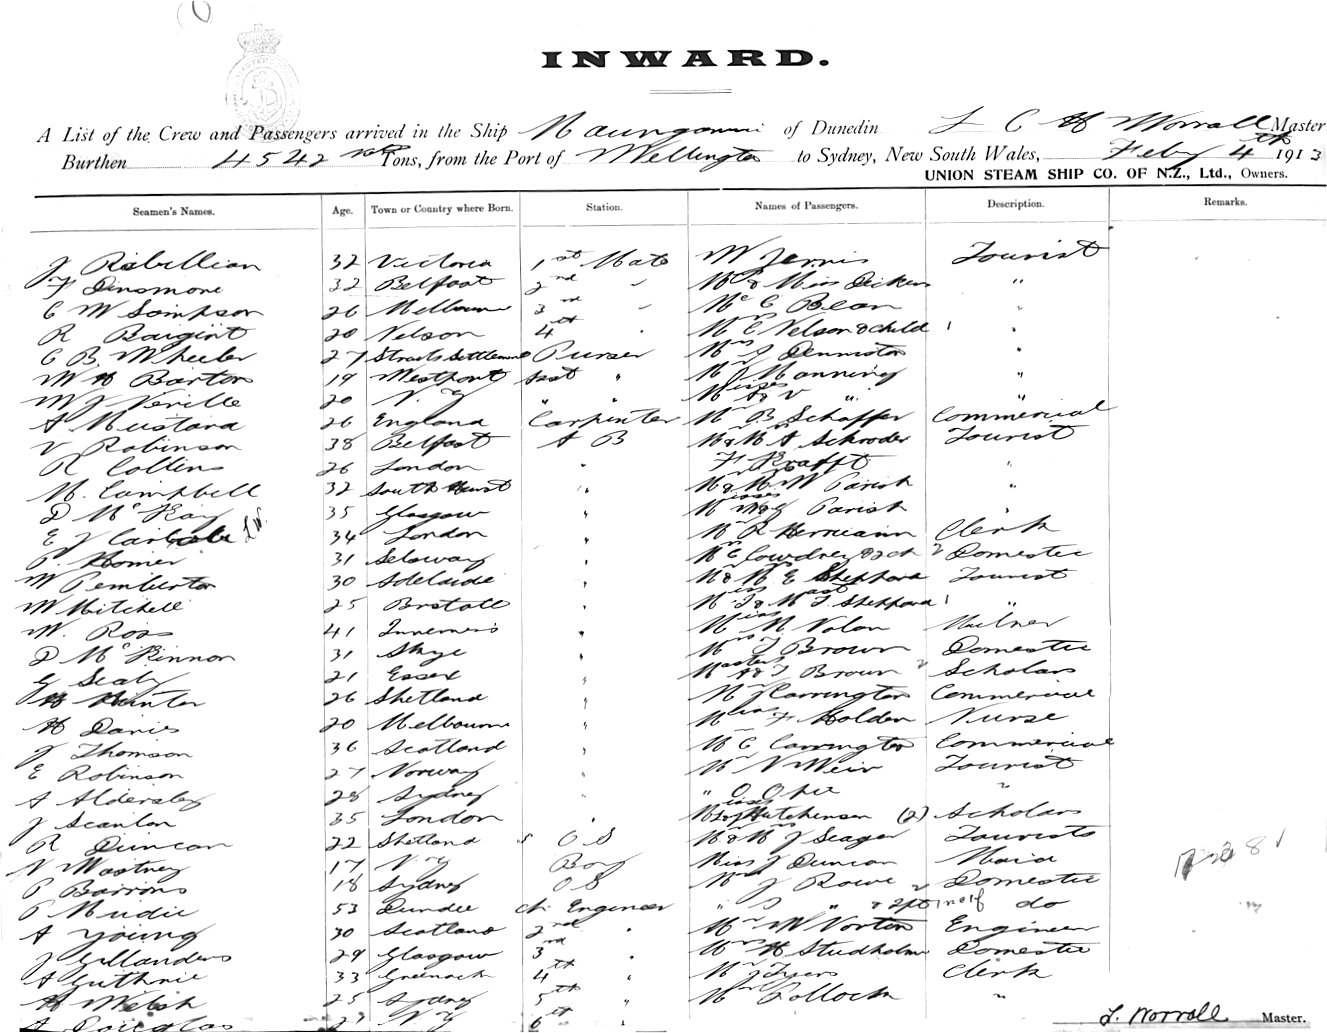 INWARD.
A List of the Crew and Passengers arrived in the Ship Maunganui of Dunedin L C H Worrall Master
Burthen 4542 Tons, from the Port of Wellington to Sydney, New South Wales, Feby 4th 1913
UNION STEAM SHIP CO. OF N.Z., Ltd., Owners.
Seamen's Names. Age. Town or Country where Born. Station. Names of Passengers. Description. Remarks.
J 32 Victoria 1st Mate W Jervis Tourist
F Dinsmore 32 Belfast 2nd " Mr & Miss Dickens "
C W Simpson 26 Melbourne 3rd " C Bean "
R 20 Nelson 4th " Mrs C Nelson & child 1 "
C B Wheeler 27 Straits Settlement Purser Mrs J Denniston "
W H Barton 19 Westport Asst " Mr J Manning "
W J Neville 20 N. Z " " Misses & V " "
A Mustard 26 England Carpenter Mr B Schaffer Commercial
V Robinson 38 Belfast A B Mr & Mrs A Schroder Tourist
R Collins 26 London " F Krafft "
M. Campbell 32 South " Mr & Mrs W Parish "
D McKay 35 Glasgow " Misses Parish "
E J Carlisle 34 London " Mr R Hermann Clerk
P. Homer 31 " Mrs C Cowdrey & 2 ch 2 Domestic
W Pemberton 30 Adelaide " Mr & Mrs E Sheppard Tourist
W Mitchell 25 " Miss & Mast Sheppard 1 "
W. Ross 41 " Miss M Nolan Milner
D McKinnon 31 Skye " Mrs J Brown Domestic
G Sealy 21 Essex " Masters A & J Brown 2 Scholars
H Hunter 26 Shetland " Mr Carrington Commercial
H Davies 20 Melbourne " Miss F Holden Nurse
J Thomson 36 Scotland " Mr C Carrington Commercial
E Robinson 27 Norway " Mr N Weir Tourist
A Aldersley 28 Sydney " " O "
J Scanlon 35 London " Hutchinson (2) Scholars
R Duncan 22 Shetland O S Mr & Mrs J Seager Tourists
N Mastney 17 N Z Boy Miss J Duncan Maid
P Barrons 18 Sydney O S Mrs J Rowe 2 Domestic
P Mudie 53 Dundee Ch Engineer " " do
A Young 30 Scotland 2nd " Mr W Norton Engineer
J Gillanders 29 Glasgow 3rd " Mrs H Studholme Domestic
A Guthrie 33 Greenock 4th " Mr J Fyers Clerk
H Welsh 25 Sydney 5th " Mr Pollock "
A Douglas 27 N Z 6th "
L. Worrall Master.